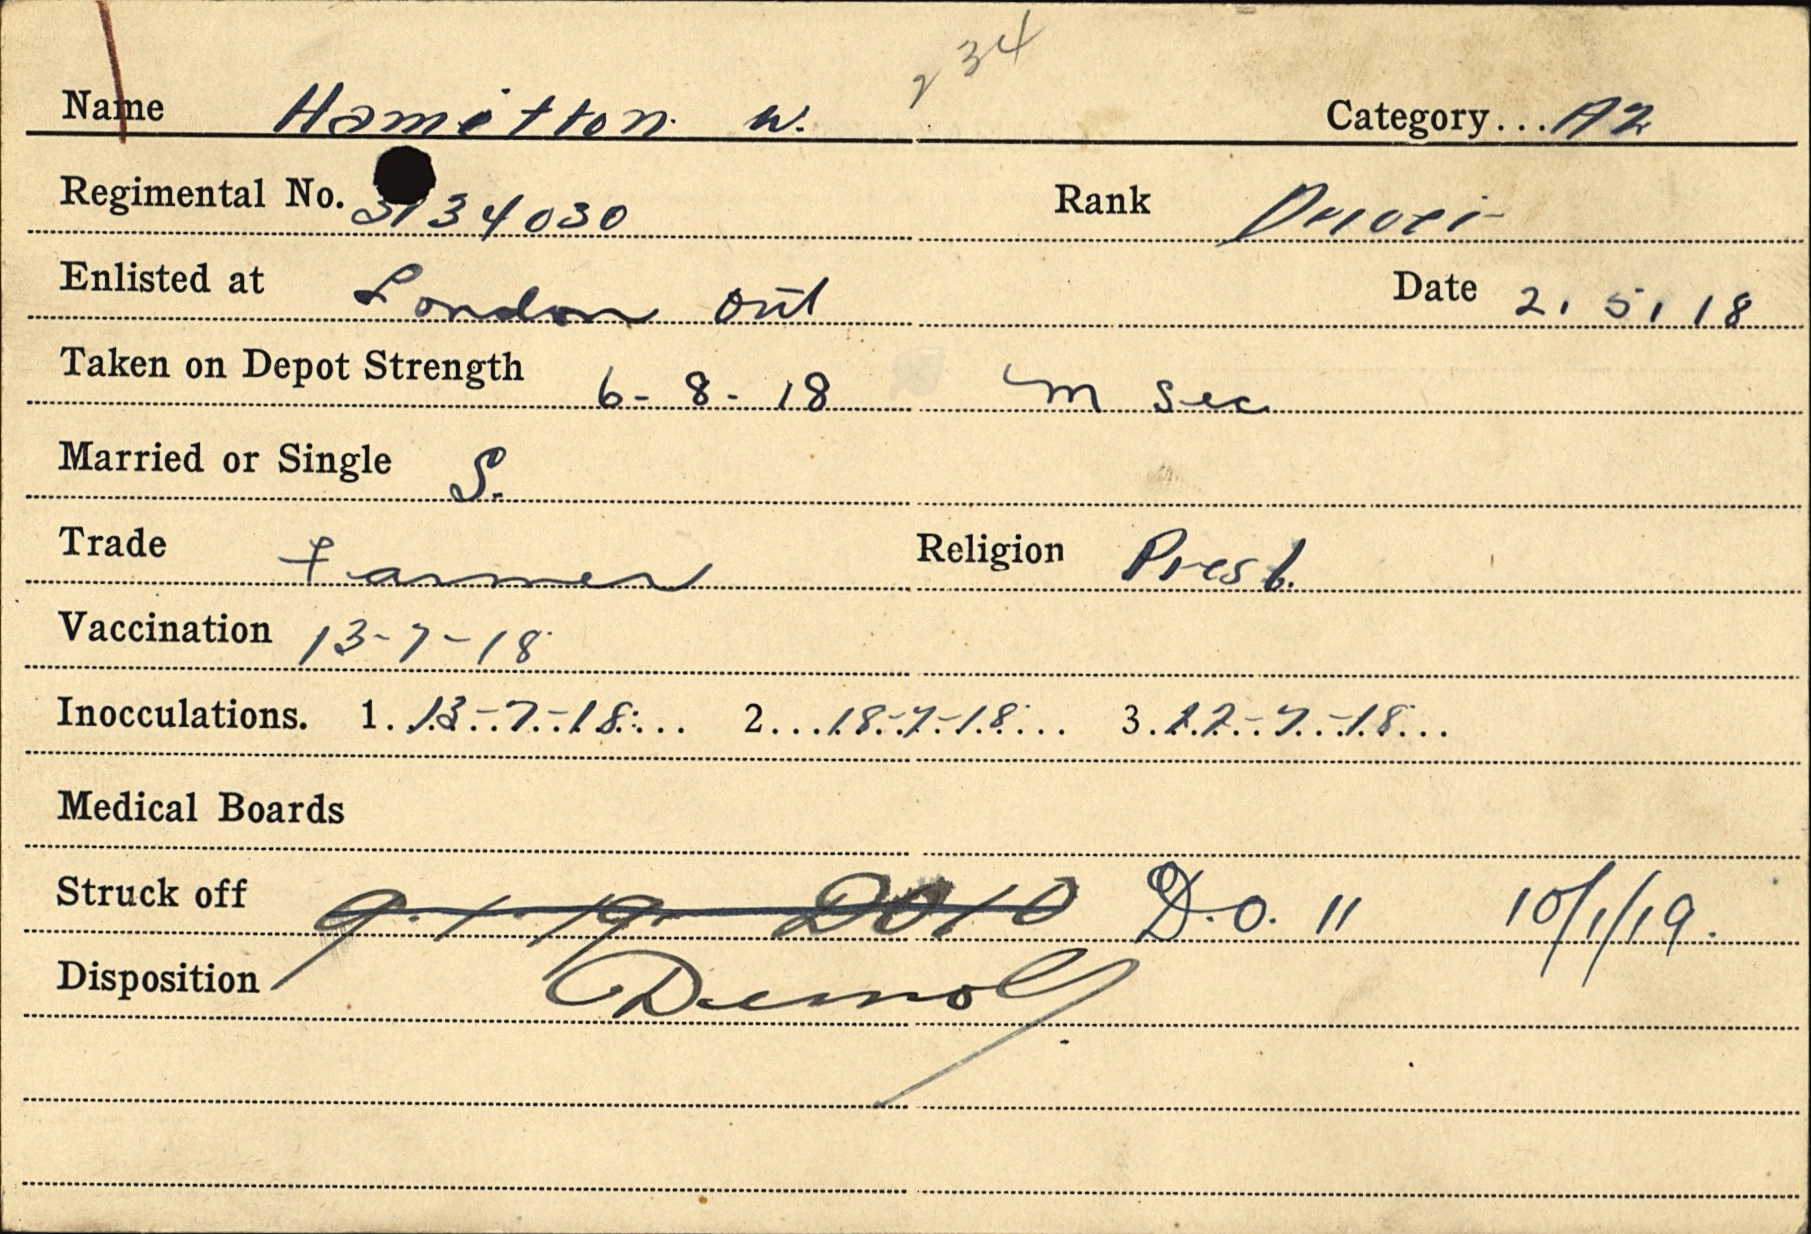 234
Name Hamilton. W. Category...A2
Regimental No. 3134030 Rank Driver
Enlisted at London Ont Date 2.5.18
Taken on Depot Strength 6-8-18 M Sec
Married or Single S.
Trade Farmer Religion Presb.
Vaccination 13-7-18
Inocculations. 1. 13-7-18 2... 18-7-18 3. 22-7-18
Medical Boards
Struck off 9.1.19 DO10 D.O. 11 10/1/19.
Disposition Demob